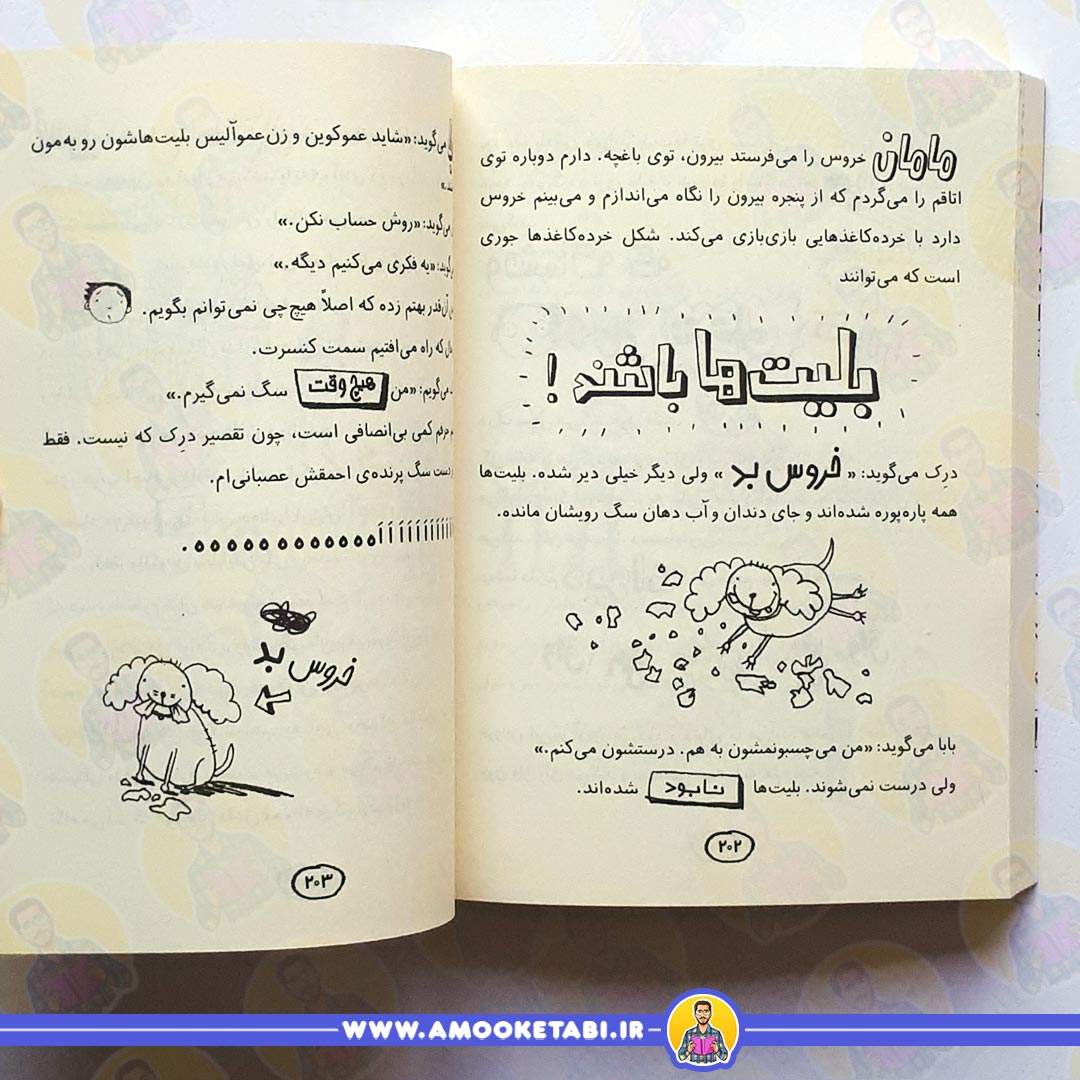 مامان خروس را می‌فرستد بیرون، توی باغچه. دارم دوباره توی
اتاقم را می‌گردم که از پنجره بیرون را نگاه می‌اندازم و می‌بینم خروس
دارد با خرده‌کاغذهایی بازی‌بازی می‌کند. شکل خرده‌کاغذها جوری
است که می‌توانند
بلیت‌ها باشند!
درِک می‌گوید: «خروس بد» ولی دیگر خیلی دیر شده. بلیت‌ها
همه پاره‌پوره شده‌اند و جای دندان و آب دهان سگ رویشان مانده.
بابا می‌گوید: «من می‌چسبونمشون به هم. درستشون می‌کنم.»
ولی درست نمی‌شوند. بلیت‌ها نابود شده‌اند.
۲۰۲
می‌گوید: «شاید عموکوین و زن‌عموآلیس بلیت‌هاشون رو به‌مون
می‌گوید: «روش حساب نکن.»
«یه فکری می‌کنیم دیگه.»
آن‌قدر بهتم زده که اصلاً هیچ‌چی نمی‌توانم بگویم.
که راه می‌افتیم سمت کنسرت.
می‌گویم: «من هیچ وقت سگ نمی‌گیرم.»
حرفم کمی بی‌انصافی است، چون تقصیر درِک که نیست. فقط
دست سگ پرنده‌ی احمقش عصبانی‌ام.
خروس بد
۲۰۳
WWW.AMOOKETABI.IR